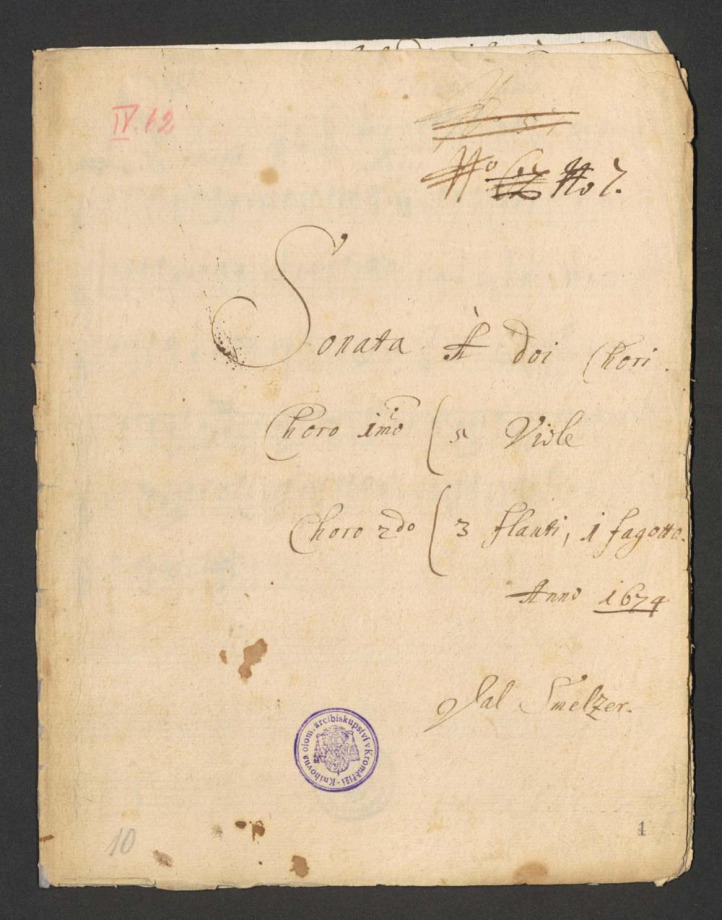 IV. 12
No 7.
Sonata À doi Chori.
Choro imo ( 5 Viole
Choro 2do ( 3 flauti, i fagotto.
Anno i674
Dal Smelzer.
Knihovna olom. arcibiskupství v Kroměříži
10
1